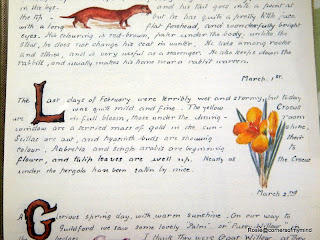 in the bye,
and his tail goes into a point at
the tip.
but he has quite a pretty little face
with a long
flat forehead, and wonderfully bright
eyes. His colouring is red-brown, paler under the body, unlike the
Stoat, he does not change his coat in winter. He hides among rocks
and stones, and is very useful as a manager. He also keeps down the
rabbits, and usually makes his home near a rabbit warren.
March. 1st.
Last days of February were terribly wet and stormy, but today
was quite mild and fine. The yellow Crocus
are in full bloom, those under the dining- room
window are a terried mass of gold in the sun- shine,
Scillas are out, and hyacinth buds are showing their
colour. Aubretia and single arabis are beginning to
flower, and tulip leaves are well up. Nearly all the Crocus
under the pergola have been eaten by mice.
March 2nd
Glorious spring day, with warm sunshine. On our way to
Guildford we saw some lovely 'Palm', or Pussy Willow in
the hedges. I think they were Goat Willow, as they
Rosie@cornersofmymind